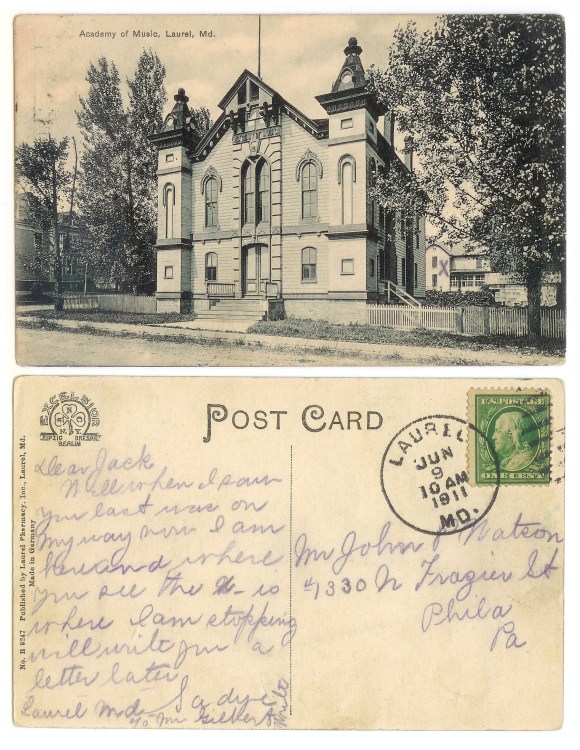 Academy of Music, Laurel, Md.
X
EXCELSIOR
SNC
N.Y.
LEIPZIG DRESDEN
BERLIN
POST CARD
No. B 8247 Published by Laurel Pharmacy, Inc., Laurel, Md.
Made in Germany
LAUREL
JUN
9
10 AM
1911
MD.
U.S. POSTAGE
ONE CENT
Dear Jack
Well when I saw
you last was on
my way now I am
here and where
you see the X is
where I am stopping
will write you a
letter later
Sadye
Laurel Md. c/o Mr Gilbert
Mr John P Watson
#1330 N Frazier St
Phila
Pa